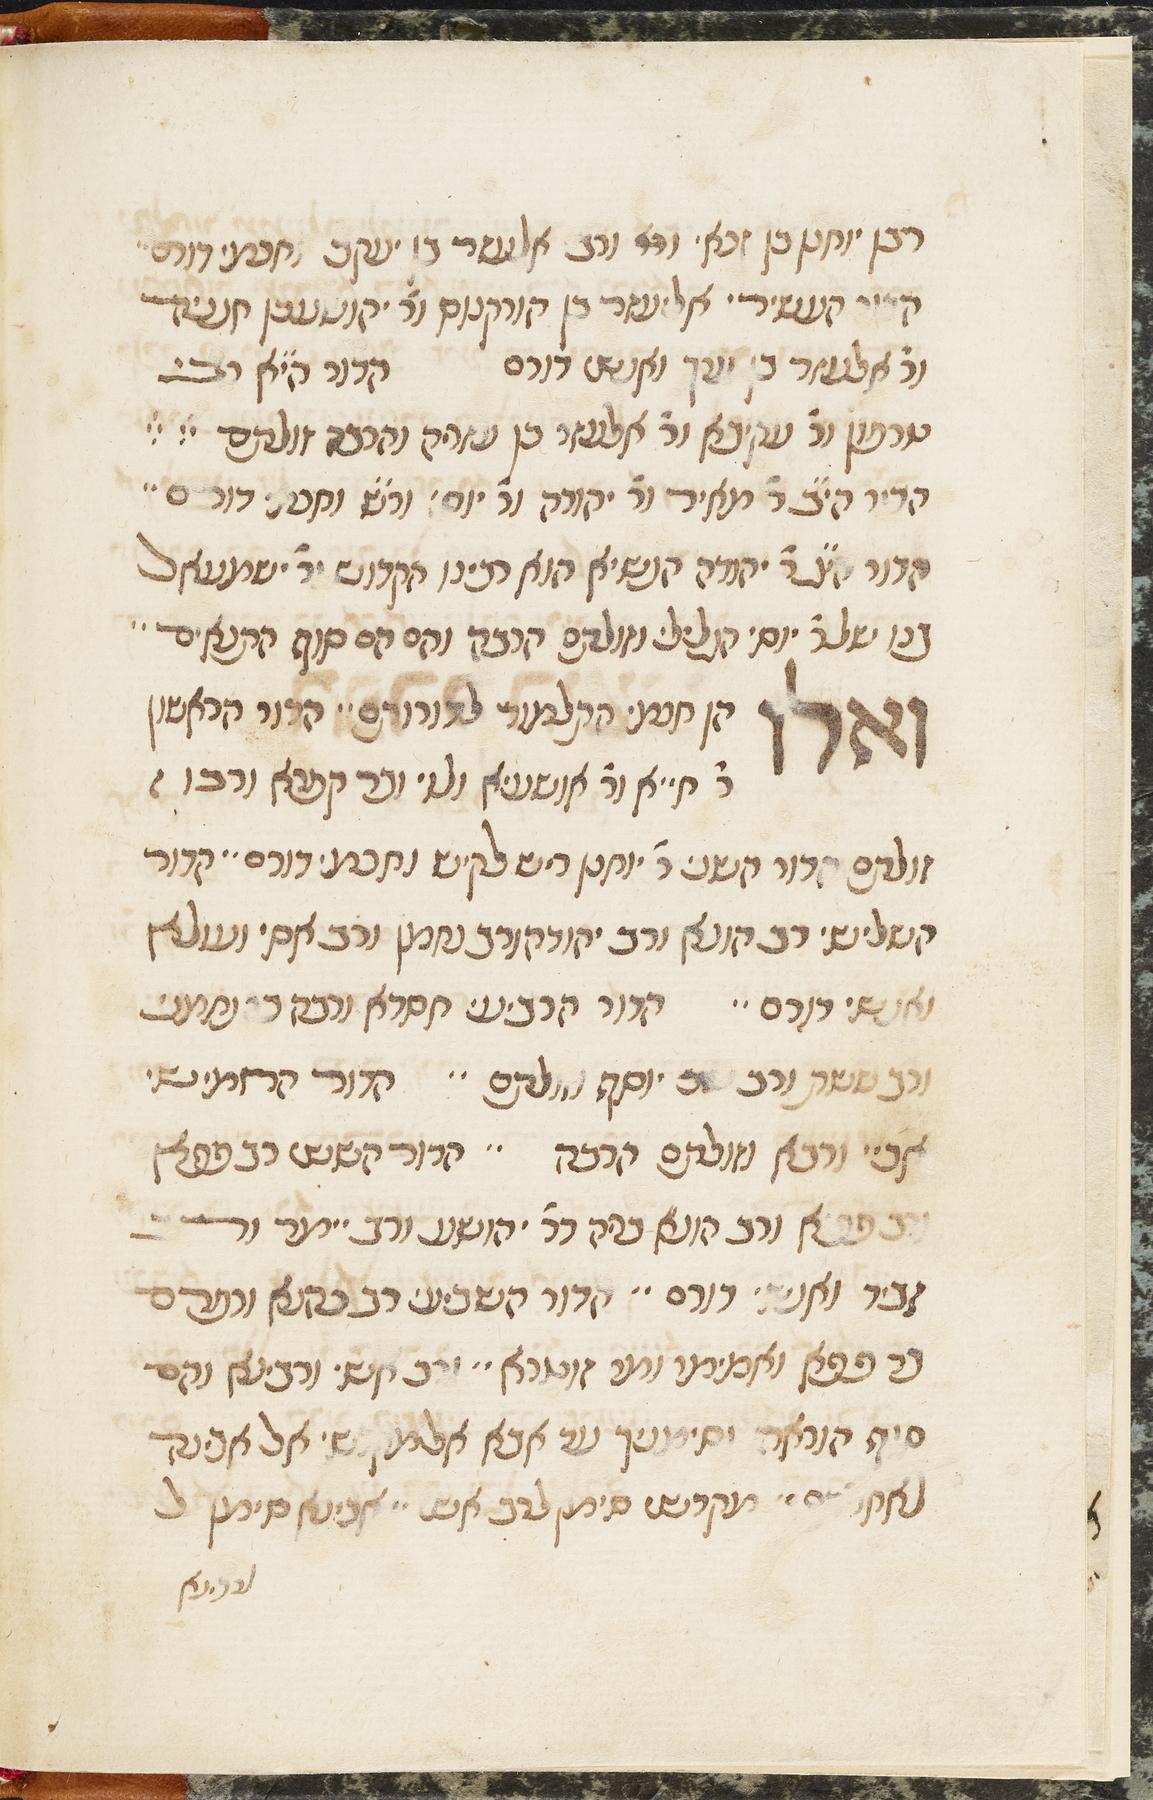 רבן יוחנן בן זכאי ור׳ ורב אליעזר בן יעקב וחכמי דורם
הדור העשירי אליעזר בן הורקנוס ור׳ יהושע בן חנניה
ור׳ אלעזר בן ערך ואנשי דורם הדור הי״א רבי
טרפון ור׳ עקיבא ור׳ אלעזר בן עזריה והרבה זולתם
הדור הי״ב ר׳ מאיר ור׳ יהודה ור׳ יוסי ור״ש וחכמי דורם
הדור הי״ג ר׳ יהודה הנשיא הוא רבינו הקדוש ור׳ ישמעאל
בנו של ר׳ יוסי הגלילי וזולתם הרבה והם הם סוף התנאים
ואלו הן חכמי התלמוד לדורותם הדור הראשון
ר׳ חייא ור׳ אושעיא ולוי ובר קפרא ורבו
זולתם הדור השני ר׳ יוחנן ריש לקיש וחכמי דורם הדור
השלישי רב הונא ורב יהודה ורב נחמן ורב אסי ועולא
ואנשי דורם הדור הרביעי חסדא ורבה בר נחמני
ורב ששת ורב יוסף וזולתם הדור החמישי
אביי ורבא וזולתם הרבה הדור הששי רב פפא
ורב פפא ורב הונא בריה דר׳ יהושע ורב יימר ורב
זביד ואנשי דורם הדור השביעי רב כהנא
בר פפא ואמימר ומר זוטרא ורב אשי ורבינא והם
סוף הוראה וסימניך עד אבא אל מקדשי אל אבינה
לאחריתם מקדש סימן לרב אשי אבינא סימן ל
לרבינא